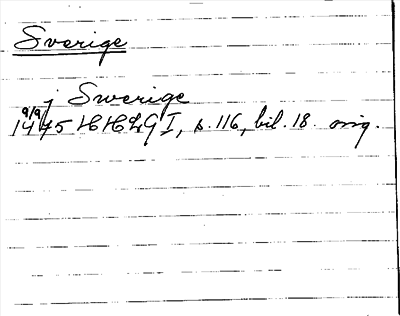 Sverige
j Swerige
9/9 1475 HHLG I, s. 116, bil. 18. orig.